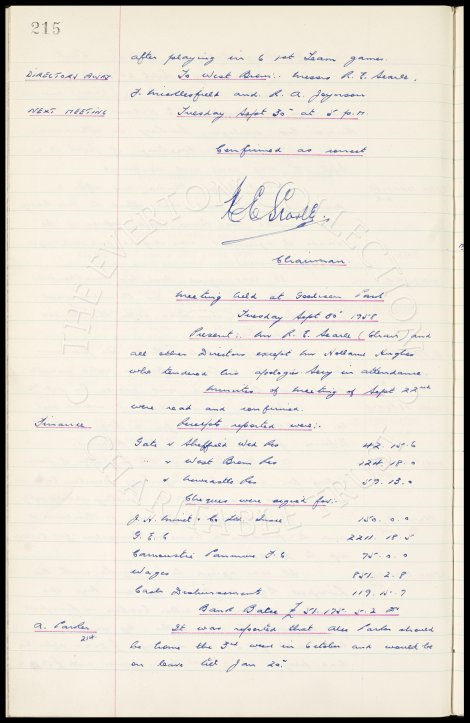 215
after playing in 6 1st Team games.
DIRECTORS AWAY To West Brom :- Messrs R. E. Searle,
J. Micklesfield and R. A. Joynson
NEXT MEETING Tuesday Sept 30 at 5 p.m.
Confirmed as correct
R E Searle
Chairman
Meeting held at Goodison Park
Tuesday Sept 30 1958
Present :- Mr R. E. Searle (Chair) and
all other Directors except Mr Holland Hughes
who tendered his apologies Secy in attendance.
Minutes of meeting of Sept 22nd
were read and confirmed.
Finance Receipts reported were :-
Gate v Sheffield Wed Res 42. 15. 6
" v West Brom Res 124. 18. 0
" v Newcastle Res 59. 13. 0
Cheques were signed for :-
J. H. & Co Ltd 150. 0. 0
G. E. C 2211. 18. 5
Carnoustie Panmure F. C 75. 0. 0
Wages 851. 2. 8
Cash Disbursement 119. 15. 7
Bank Balce £ 51. 175. 5. 2
A. Parker It was reported that Alex Parker should
21st
be home the 3rd week in October and would be
on leave till Jan 20.
THE EVERTON COLLECTION
CHARITABLE TRUST